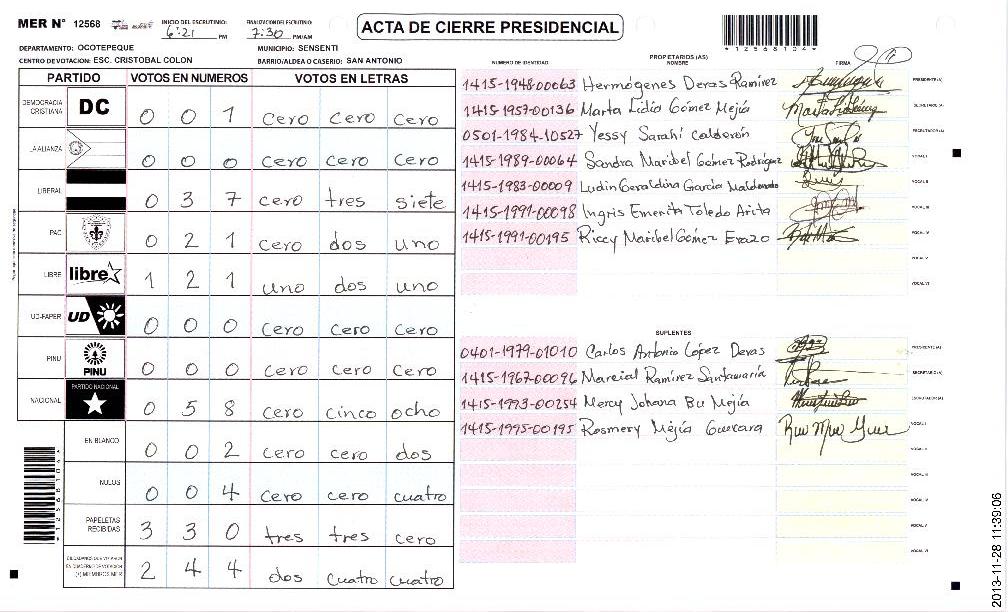 MER N° 12568
INICIO DEL ESCRUTINIO: 6:21 PM
FINALIZACION DEL ESCRUTINIO 7:30 PM/AM
ACTA DE CIERRE PRESIDENCIAL
*1256810*
DEPARTAMENTO: OCOTEPEQUE
MUNICIPIO: SENSENTI
CENTRO DE VOTACION: ESC. CRISTOBAL COLON
BARRIO/ALDEA O CASERIO: SAN ANTONIO
PARTIDO VOTOS EN NUMEROS VOTOS EN LETRAS
DEMOCRACIA CRISTIANA DC 0 0 1 cero cero cero
LA ALIANZA 0 0 0 cero cero cero
LIBERAL 0 3 7 cero tres siete
PAC 0 2 1 cero dos uno
LIBRE libre 1 2 1 uno dos uno
UD-FAPER UD 0 0 0 cero cero cero
PINU PINU 0 0 0 cero cero cero
NACIONAL PARTIDO NACIONAL 0 5 8 cero cinco ocho
EN BLANCO 0 0 2 cero cero dos
NULOS 0 0 4 cero cero cuatro
PAPELETAS RECIBIDAS 3 3 0 tres tres cero
CIUDADANOS QUE VOTARON EN CUADERNO DE VOTACION (+) MIEMBROS MER 2 4 4 dos cuatro cuatro
PROPIETARIOS (AS)
NUMERO DE IDENTIDAD NOMBRE FIRMA
1415-1948-00063 Hermógenes Deras Ramírez PRESIDENTE(A)
1415-1957-00136 Marta Lidia Gómez Mejía SECRETARIO(A)
0501-1984-10527 Yessy Sarahí Calderón ESCRUTADOR(A)
1415-1989-00064 Sandra Maribel Gómez Rodríguez VOCAL I
1415-1983-00009 Ludin Geraldina García Maldonado VOCAL II
1415-1991-00098 Ingris Emerita Toledo Arita VOCAL III
1415-1991-00195 Riccy Maribel Gómez Erazo VOCAL IV
VOCAL V
VOCAL VI
SUPLENTES
0401-1979-01010 Carlos Antonio López Deras PRESIDENTE(A)
1415-1967-00096 Marcial Ramírez Santamaría SECRETARIO(A)
1415-1993-00254 Mercy Johana Bu Mejía ESCRUTADOR(A)
1415-1995-00195 Rosmery Mejía Guevara VOCAL I
VOCAL II
VOCAL III
VOCAL IV
VOCAL V
VOCAL VI
2013-11-28 11:39:06